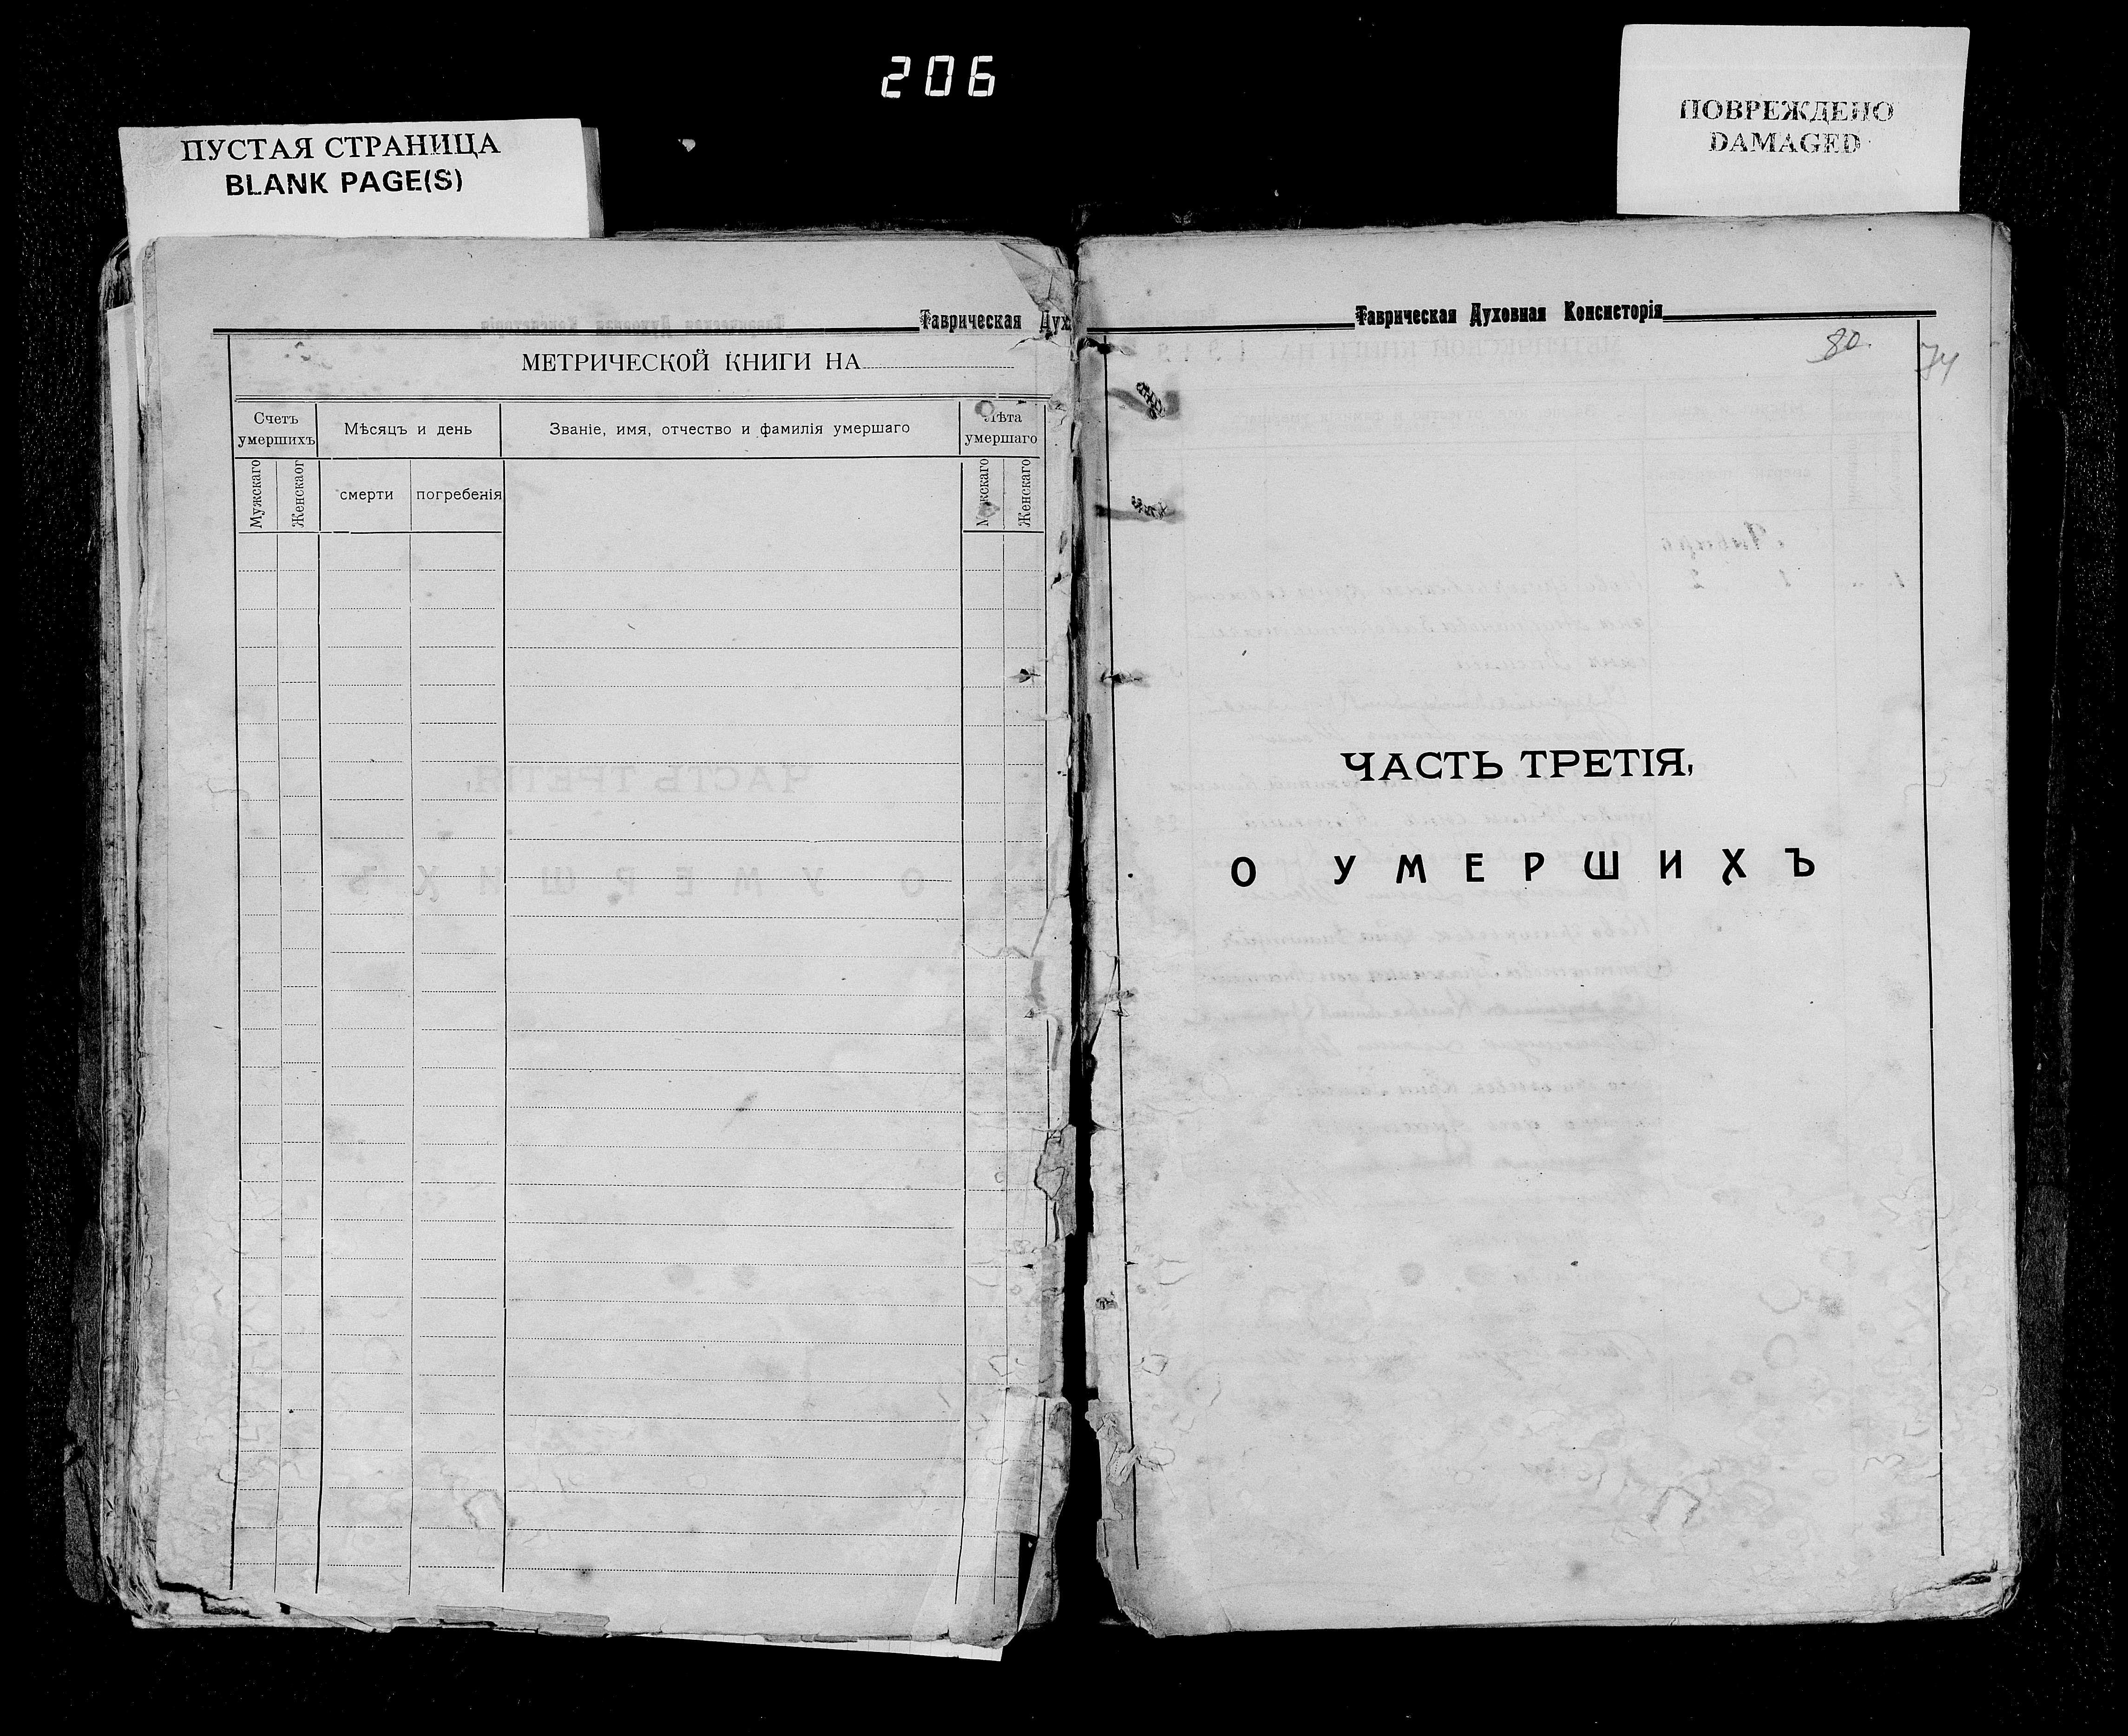 206
ПУСТАЯ СТРАНИЦА
BLANK PAGE(S)
ПОВРЕЖДЕНО
DAMAGED
Таврическая Дух
МЕТРИЧЕСКОЙ КНИГИ НА
Счетъ умершихъ
Мѣсяцъ и день
Званіе, имя, отчество и фамилія умершаго
Лѣта умершаго
Мужскаго
Женскаог
смерти
погребенія
Мужскаго
Женскаго
Таврическая Духовная Консисторія
80.
74
ЧАСТЬ ТРЕТІЯ,
О УМЕРШИХЪ